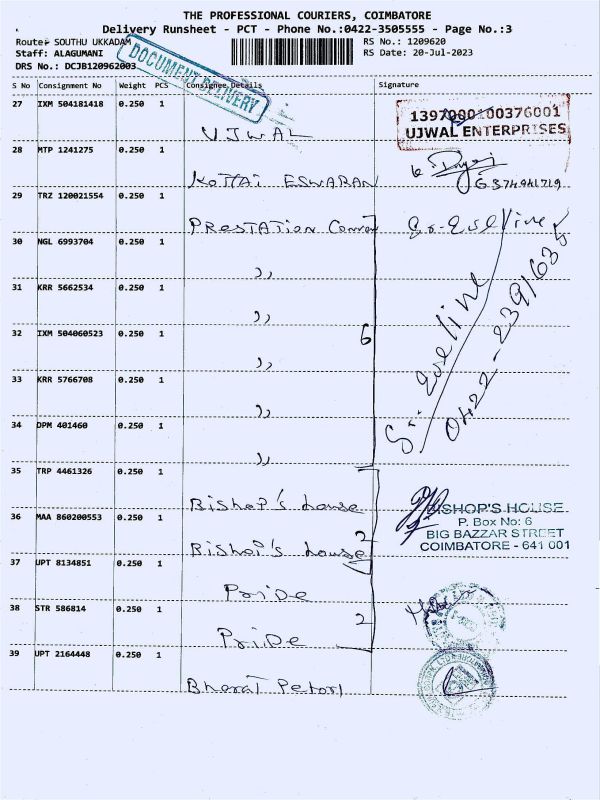 THE PROFESSIONAL COURIERS, COIMBATORE
Delivery Runsheet - PCT - Phone No.:0422-3505555 - Page No.:3
Route: SOUTHU UKKADAM
RS No.: 1209620
Staff: ALAGUMANI
RS Date: 20-Jul-2023
DRS No.: DCJB120962003
DOCUMENT DELIVERY
S No Consignment No Weight PCS Consignee Details Signature
27 IXM 504181418 0.250 1
UJWAL
1397000100376001
UJWAL ENTERPRISES
28 MTP 1241275 0.250 1
KOTTAI ESWARAN
6374941719
29 TRZ 120021554 0.250 1
PRESTATION Conven
Sr. Eveline
30 NGL 6993704 0.250 1
,,
31 KRR 5662534 0.250 1
,,
6
32 IXM 504060523 0.250 1
,,
33 KRR 5766708 0.250 1
,,
34 DPM 401460 0.250 1
,,
Sr. Eveline
0422-2391635
35 TRP 4461326 0.250 1
Bishop's house
36 MAA 860200553 0.250 1
Bishop's house
2
BISHOP'S HOUSE
P. Box No: 6
BIG BAZZAR STREET
COIMBATORE - 641 001
37 UPT 8134851 0.250 1
Pride
38 STR 586814 0.250 1
Pride
2
39 UPT 2164448 0.250 1
Bharat Petorl